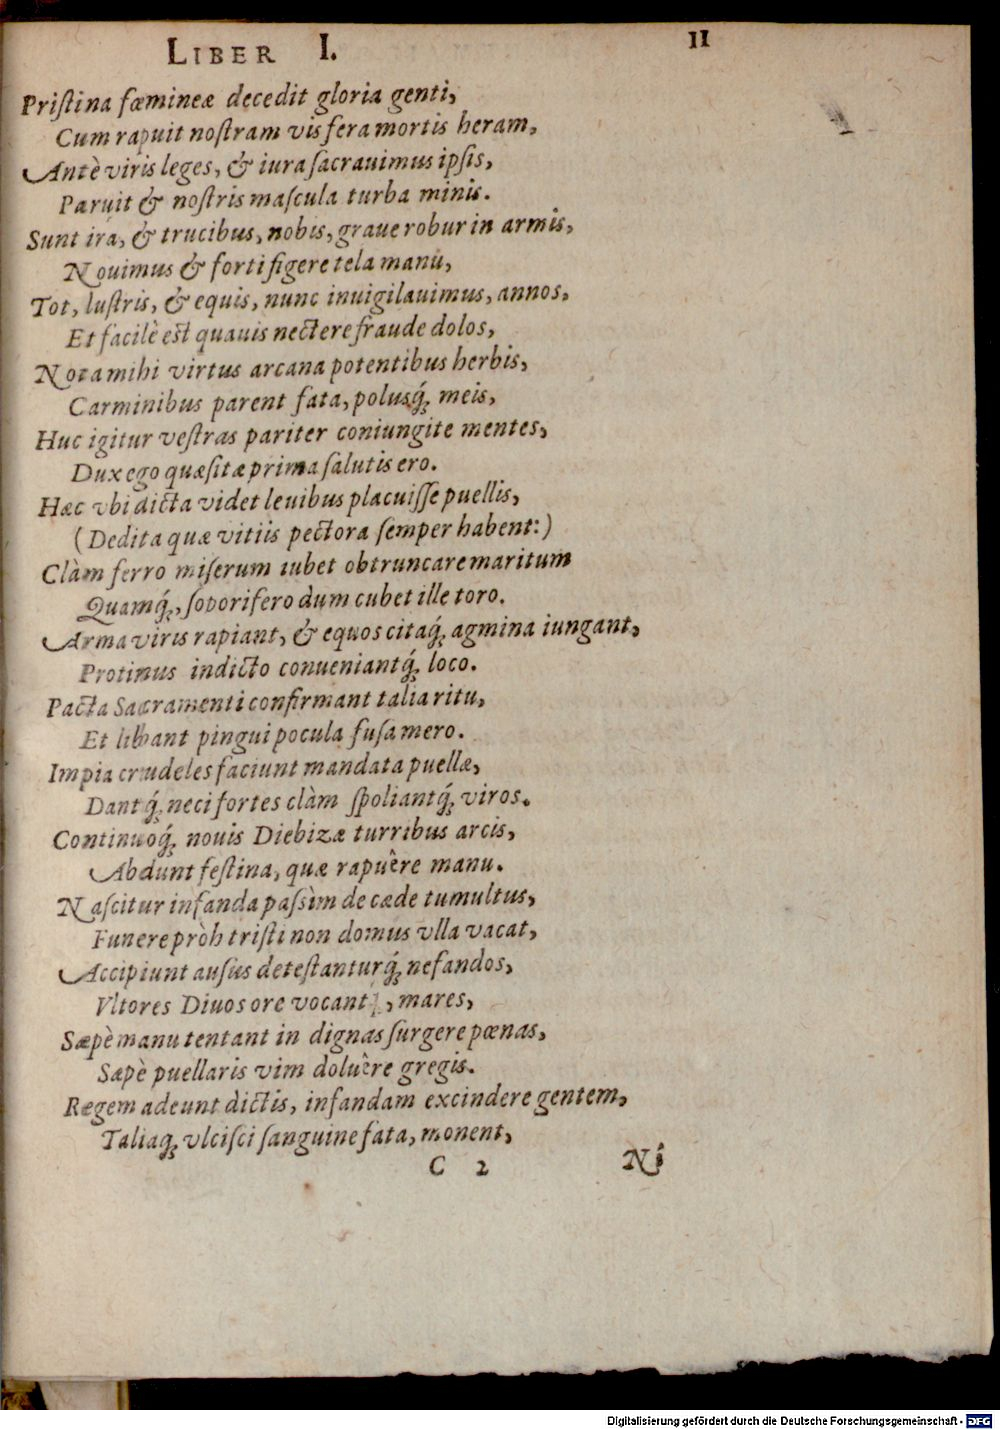 LIBER I. 11
Priſtina fœmineæ decedit gloria genti,
Cum rapuit noſtram vis fera mortis heram,
Antè viris leges, & iura ſacrauimus ipſis,
Paruit & noſtris maſcula turba minis.
Sunt ira, & trucibus, nobis, graue robur in armis,
Nouimus & forti figere tela manu,
Tot, luſtris, & equis, nunc inuigilauimus, annos,
Et facilè est quauis nectere fraude dolos,
Nota mihi virtus arcana potentibus herbis,
Carminibus parent fata, polusq́; meis,
Huc igitur veſtras pariter coniungite mentes,
Dux ego quæſitæ prima ſalutis ero.
Hæc vbi dicta videt leuibus placuiſſe puellis,
(Dedita quæ vitiis pectora ſemper habent:)
Clàm ferro miſerum iubet obtruncare maritum
Quamq́;, ſoporifero dum cubet ille toro.
Arma viris rapiant, & equos citaq́; agmina iungant,
Protinus indicto conueniantq́; loco.
Pacta Sacramenti confirmant talia ritu,
Et libant pingui pocula fuſa mero.
Impia crudeles faciunt mandata puellæ,
Dantq́; neci fortes clàm ſpoliantq́; viros.
Continuoq́; nouis Diebizæ turribus arcis,
Abdunt feſtina, quæ rapuêre manu.
Naſcitur infanda paſsìm de cæde tumultus,
Funere pròh triſti non domus vlla vacat,
Accipiunt auſus deteſtanturq́; nefandos,
Vltores Diuos ore vocant, mares,
Sæpè manu tentant in dignas ſurgere pœnas,
Sæpè puellaris vim doluêre gregis.
Regem adeunt dictis, infandam excindere gentem,
Taliaq́; vlciſci ſanguine fata, monent,
C 2 Ni
Digitalisierung gefördert durch die Deutsche Forschungsgemeinschaft - DFG